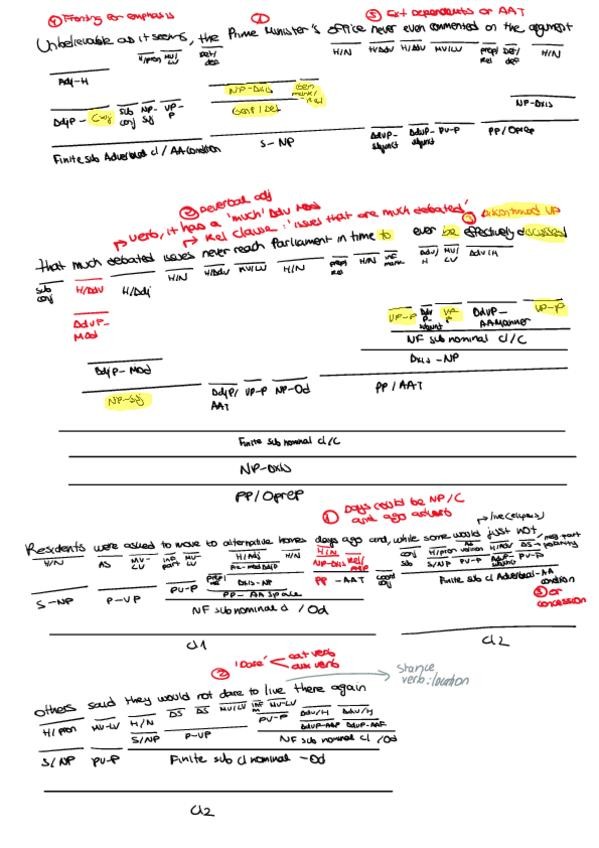 ④ Fronting for emphasis
①
⑤ Ext Dependents or AAT
Unbelievable as it seems, the Prime Minister's office never even commented on the argument
H/pron MV/LV Det/def H/N H/Adv H/Adv MV/LV prep/Rel Det/def H/N
Adj-H
NP-Dxis Gen
NP-Dxis
AdjP- Conj Sub conj NP-Sj VP-P
Gen P/Det
Finite sub Adverbial cl / AA condition S-NP AdvP-Adjunct AdvP-Adjunct PV-P PP/Oprep
② Deverbal adj
verb, it has a 'much' Adv Mod
Rel Clause: 'issues that are much debated'
③ Discontinued VP
that much debated issues never reach Parliament in time to ever be effectively discussed
Sub conj H/Adv H/Adj H/N H/Adv MV/LV H/N prep/Rel H/N inf mark Adv/H MV/LV Adv/H
AdvP-Mod
VP-P VP-P AdvP-AA Manner VP-P
NF sub nominal cl/C
AdjP-Mod Dxis-NP
NP-Sj AdjP/AAT VP-P NP-Od PP/AAT
Finite sub nominal cl/C
NP-Dxis
PP/Oprep
① Days could be NP/C
and ago adverb
live (ellipsis)
Residents were asked to move to alternative homes days ago and, while some would just not
H/N AS MV-LV inf part MV-LV H/Adj H/N H/N coord conj sub conj H/pron H/Adv DS neg part polarity
Pre-mod AdjP NP-Dxis Rel/prep S/NP PV-P PV-P
S-NP P-VP PV-P Dxis-NP PP-AAT
PP-AA Space Finite sub cl Adverbial-AA condition
NF sub nominal cl/Od ③ or concession
Cl1 Cl2
② 'Dare' cat verb
aux verb
Stance
verb: location
others said they would not dare to live there again
H/pron MV-LV H/N DS DS MV/LV MV-LV Adv/H Adv/H
S/NP P-VP PV-P
S/NP PV-P Finite sub cl nominal -Od NF sub nominal cl/Od
Cl2